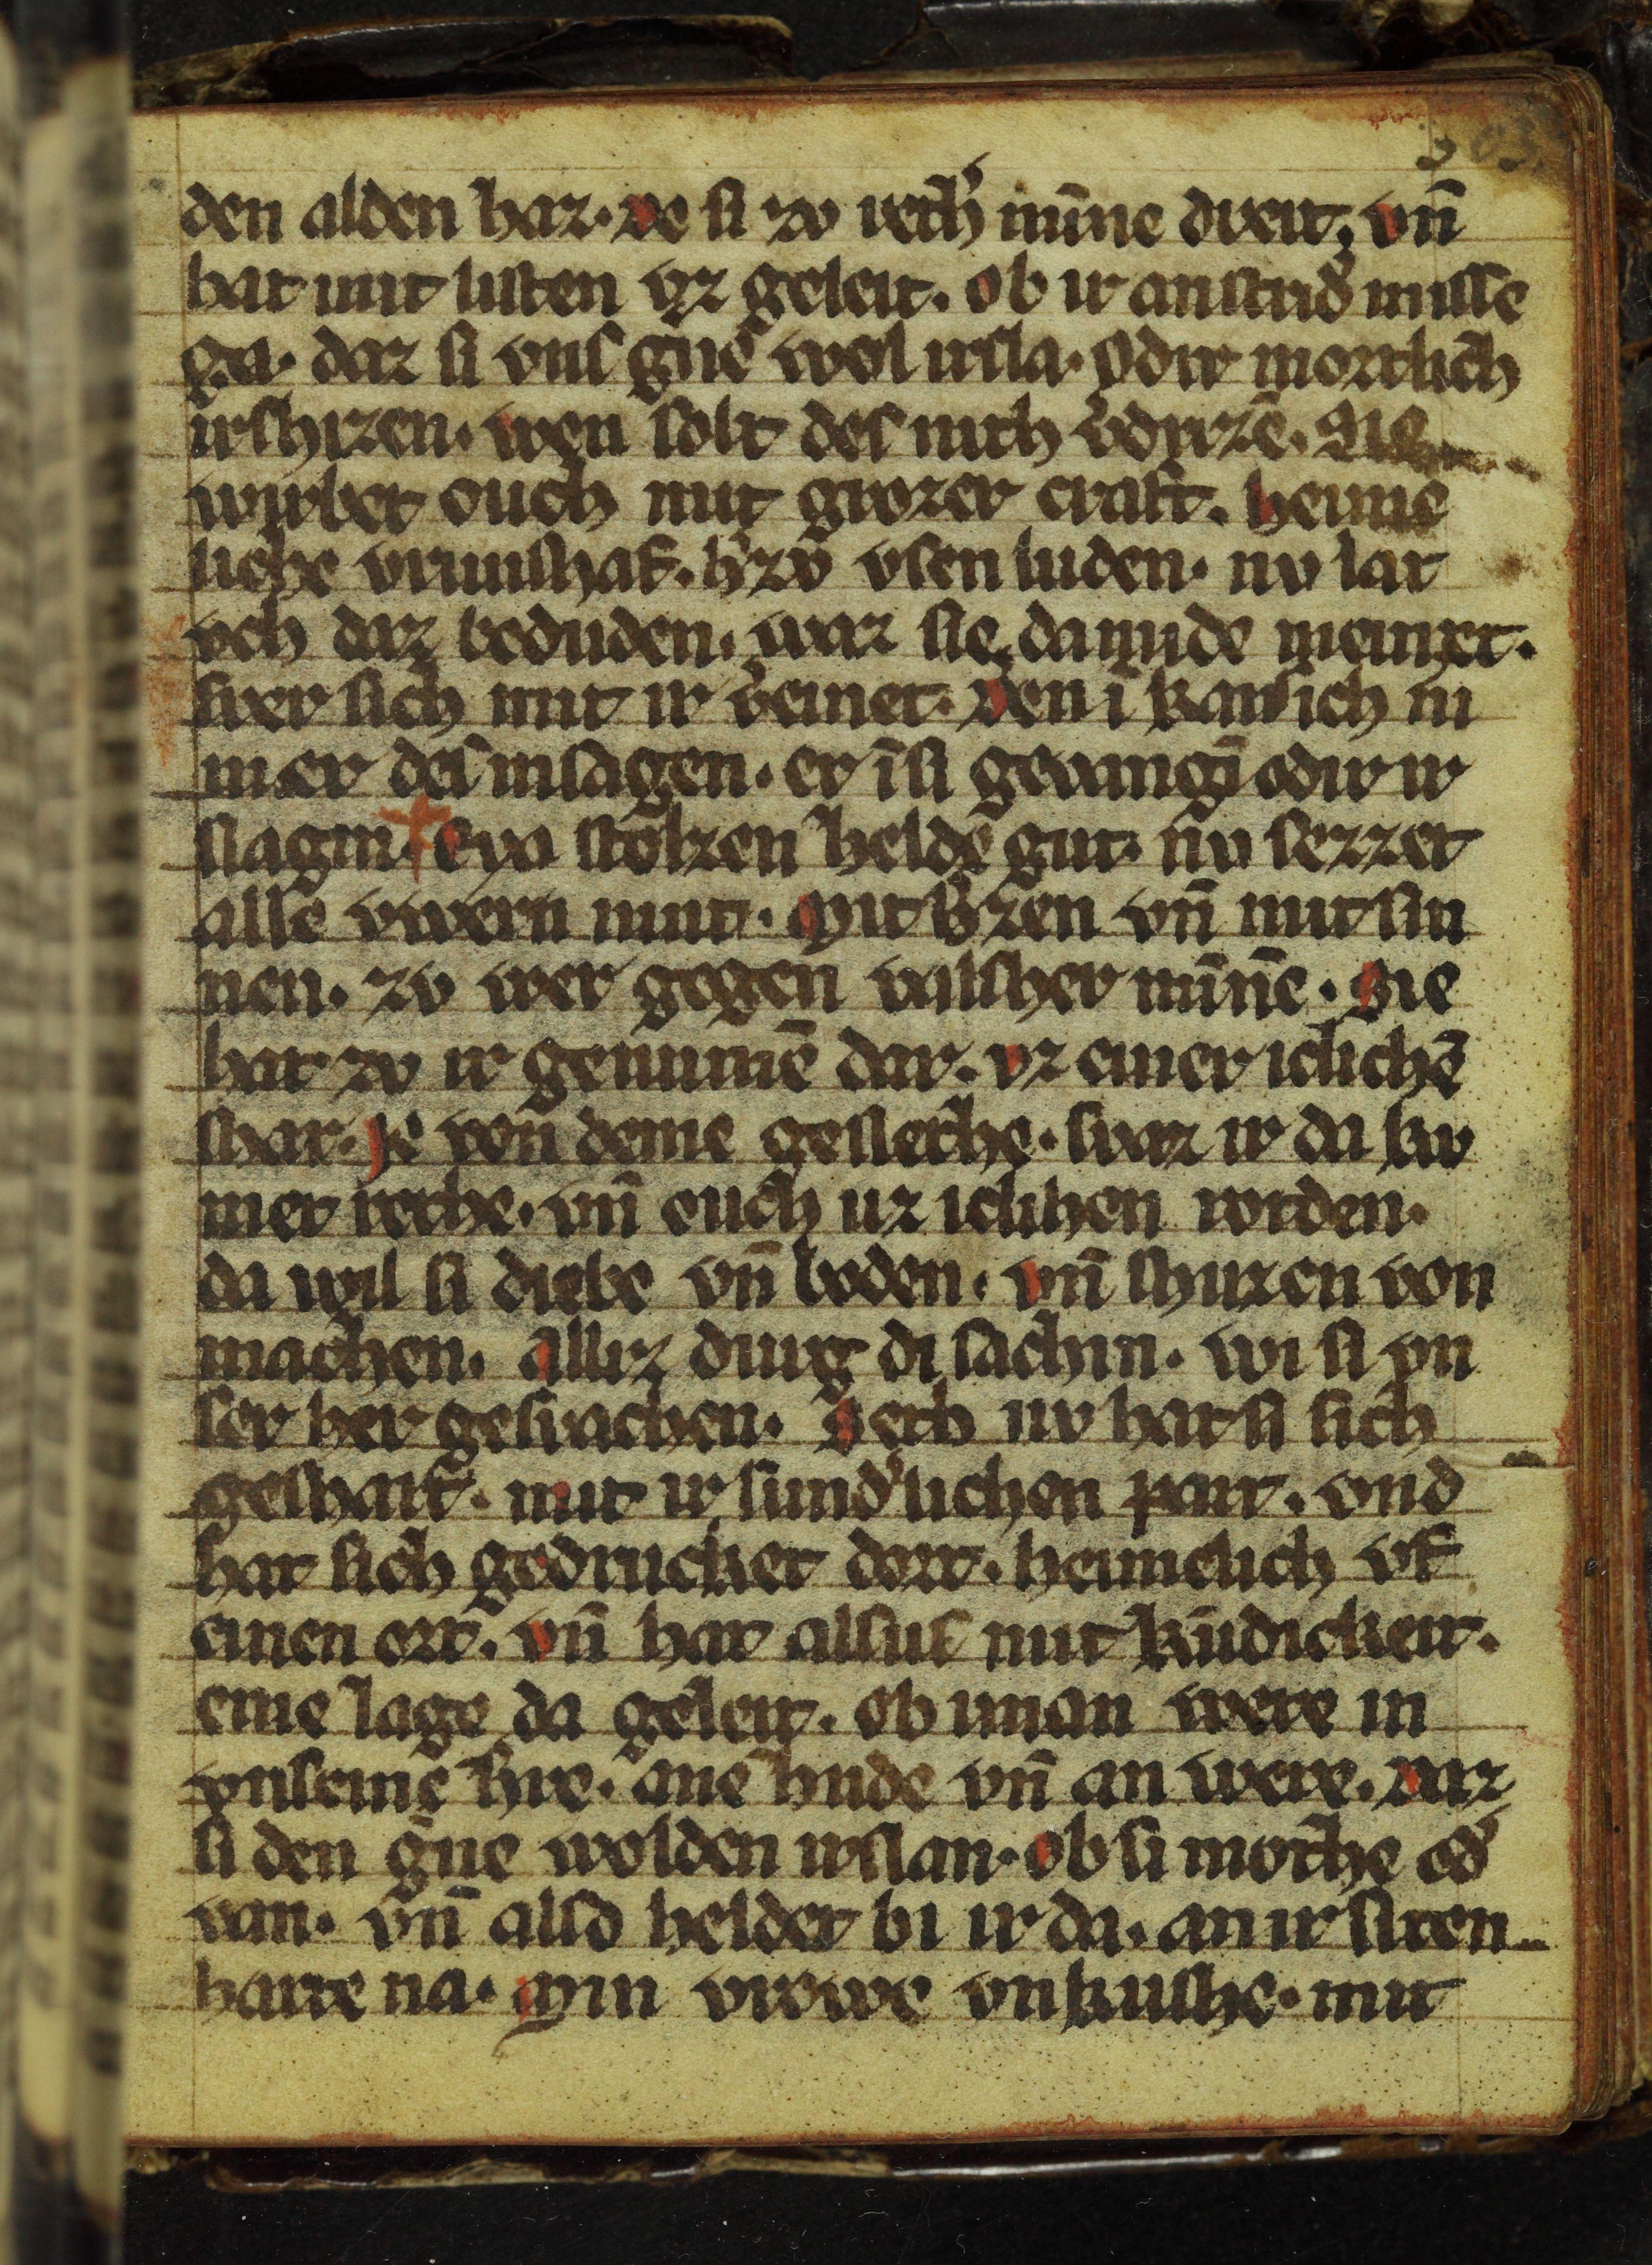 den alden haz. De si zv rech' mīne dreit, vn̄
hat mit listen vz geleit. Ob ir an strid' misse
ga. daz si vns gn̄e wol irsla. Odir mortlich
irshizen. Wen solt des nith v̄drize. Sie
wirbet ouch mit grozer craft. heime
liche vruntshaf. h'zv vsen luden. nv lat
vch daz beduden. waz sie da mide meinet.
swer sich mit ir v̄einet. Den ī kan sich ni
mer des insagen. er īsi gevangī odir ir
slagin. Eya stolzen helde gut. nv sezzet
alle vwern mut. Mit h'zen vn̄ mit sin
nen. zv wer gegen valsher mīne. Sie
hat zv ir genumē dar. vz einer iclichē
shar. Je von deme geslethe. swaz ir da ku
met rethe. vn̄ ouch uz iclihen orden.
da wil si diebe vn̄ boden. vn̄ shuzen von
machen. Alliz ding di sachin. wi si vn
ser her gesvachen. Seth nv hat si sich
geshart. mit ir sund'lichen part. vnd
hat sich gedrucket dort. heimelich vf
einen ort. vn̄ hat alsus mit kūdickeit.
eine lage da geleit. ob iman were in
vnseme here. ane hude vn̄ an were. Daz
si den gn̄e wolden irslan. Ob si mothe od'
van. vn̄ also heldet bi ir da. an ir siten
harte na. Min vrowe vnkushe. mit